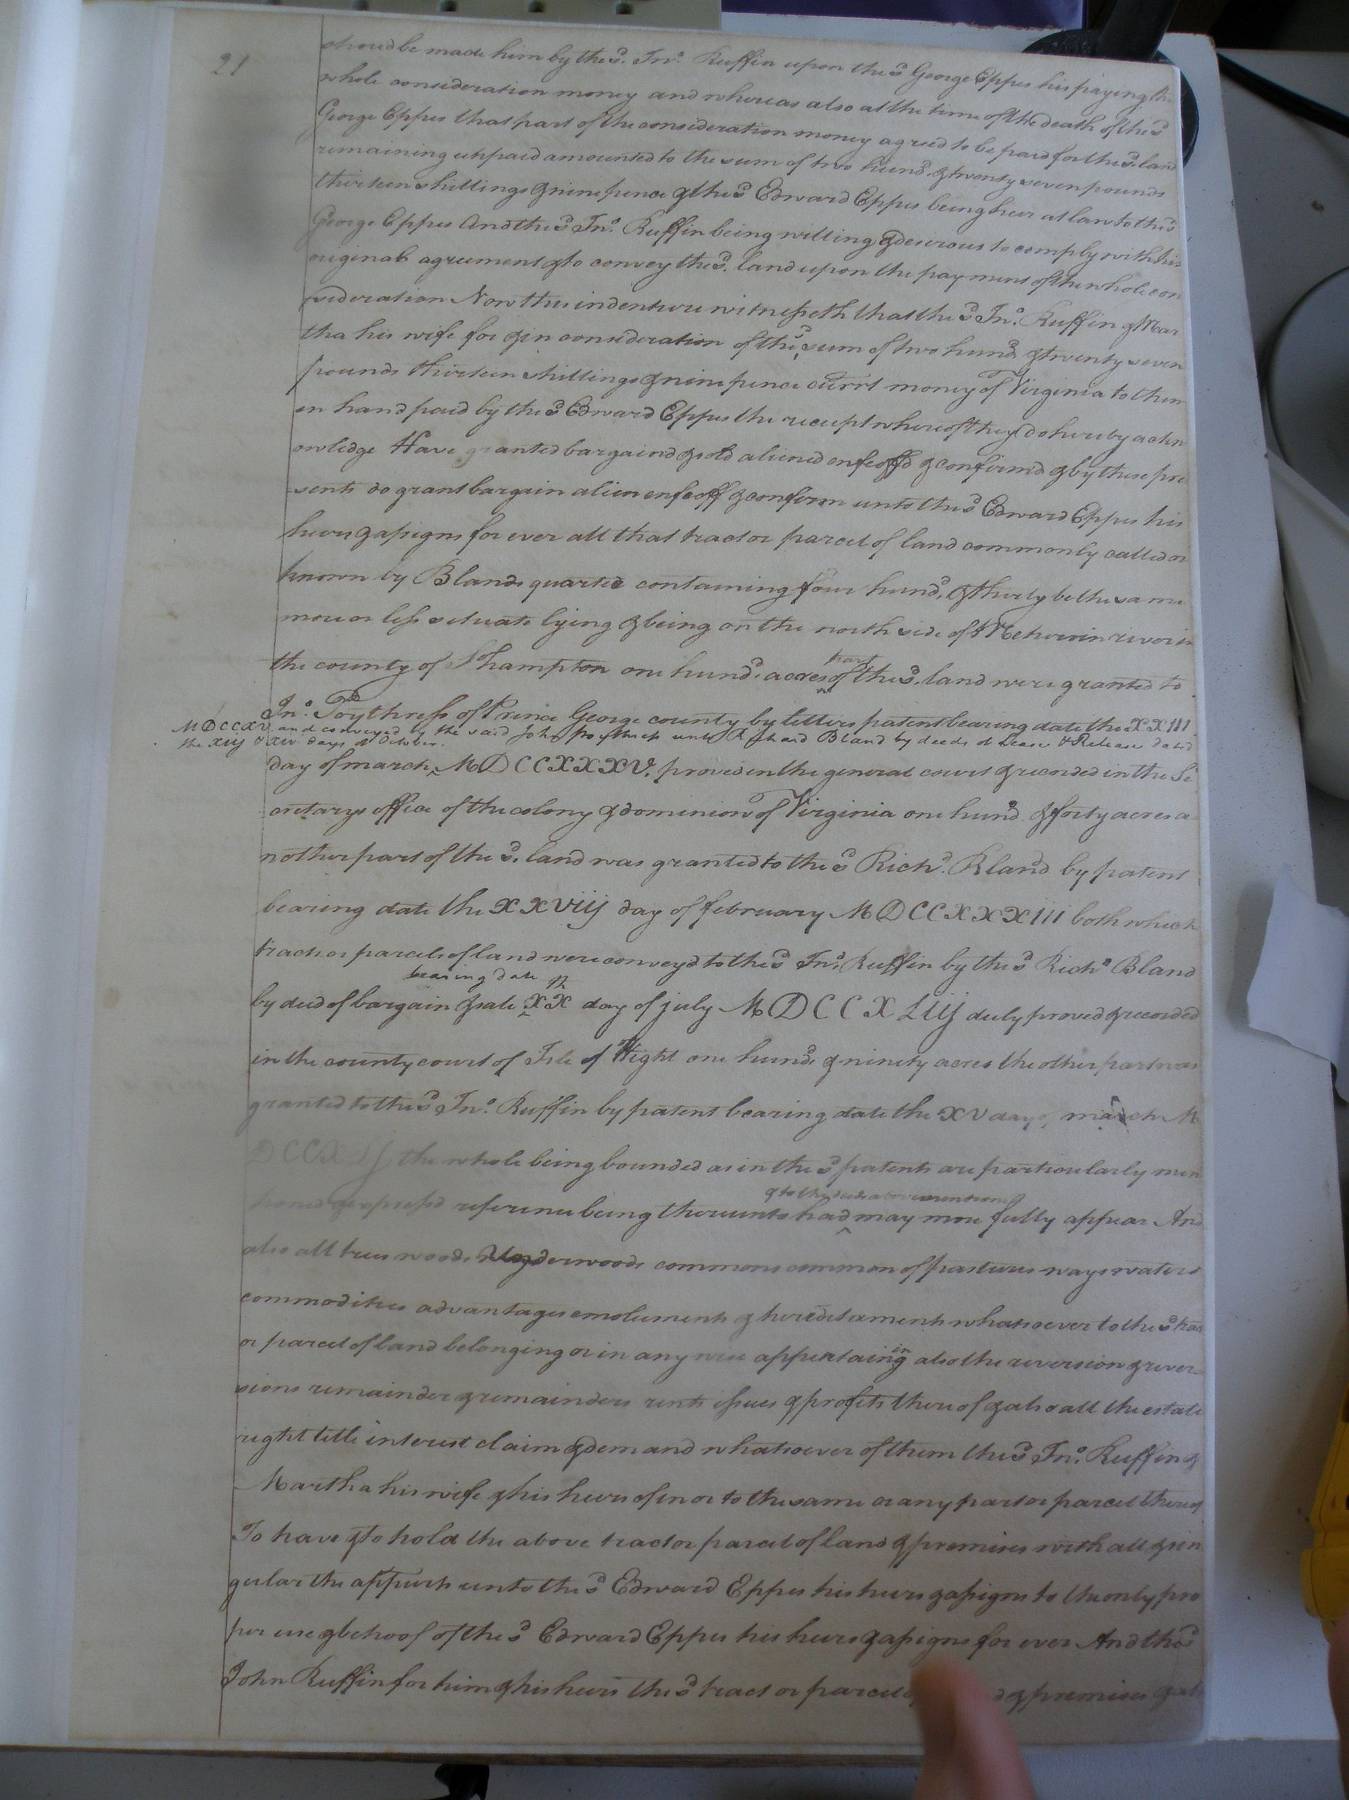 21
shoud be made him by the sd. Jno. Ruffin upon the sd George Eppes his paying the
whole consideration money and whereas also at the time of the death of the sd
George Eppes that part of the consideration money agreed to be paid for the sd. land
remaining unpaid amounted to the sum of two hund. & twenty seven pounds
thirteen shillings & nine pence & the sd Edward Eppes being heir at law to the sd
George Eppes And the sd Jno. Ruffin being willing & desirous to comply with his
original agreement & to convey the sd. land upon the payment of the whole con
sideration Now this indenture witnesseth that the sd Jno. Ruffin & Mar
tha his wife for & in consideration of the sd sum of two hund. & twenty seven
pounds thirteen shillings & nine pence currt money of Virginia to them
in hand paid by the sd Edward Eppes the receipt whereof they do hereby ackn
owledge Have granted bargaind & sold aliened enfeoffd & confirmd & by these pre
sents do grant bargain alien enfeoff & confirm unto the sd Edward Eppes his
heirs & assigns for ever all that tract or parcel of land commonly called or
known by Blands quarter containing four hund. & thirty be the same
more or less situate lying & being on the north side of Meherrin river in
the county of No hampton one hund. acres part of the sd. land were granted to
Jno. Poythress of Prince George county by letters patent bearing date the XXIII
MDCCXV and conveyed by the said John Poythress unto Richard Bland by deeds of Lease & Release dated
the xiij & xiv days of October.
day of march MDCCXXXV, proved in the general court & recorded in the Se
cretarys office of the colony & dominion of Virginia one hund. & forty acres a
nother part of the sd. land was granted to the sd Richd. Bland by patent
bearing date the XXViij day of february MDCCXXXIII both which
tracts or parcels of land were conveyd to the sd Jno. Ruffin by the sd Richd Bland
by deed of bargain & sale bearing date ye XX day of july MDCCXLiij duly proved & recorded
in the county court of Isle of Wight one hund. & ninety acres the other part was
granted to the sd Jno. Ruffin by patent bearing date the XV day of march M
the whole being bounded as in the sd patents are particularly men
tioned & expressd reference being thereunto had & to the deeds above mentiond may more fully appear And
also all trees woods Underwoods commons common of pastures ways waters
commodities advantages emoluments & hereditaments whatsoever to the sd tract
or parcel of land belonging or in any wise appertaining also the reversion & rever
sions remainder & remainders rents issues & profits thereof & also all the estate
right title interest claim & demand whatsoever of them the sd Jno. Ruffin &
Martha his wife & his heirs of in or to the same or any part or parcel thereof
To have & to hold the above tract or parcel of land & premises with all & sin
gular the appurts unto the sd Edward Eppes his heirs & assigns to the only pro
per use & behoof of the sd Edward Eppes his heirs & assigns for ever And the sd
John Ruffin for him & his heirs the sd tract or parcel & premises &